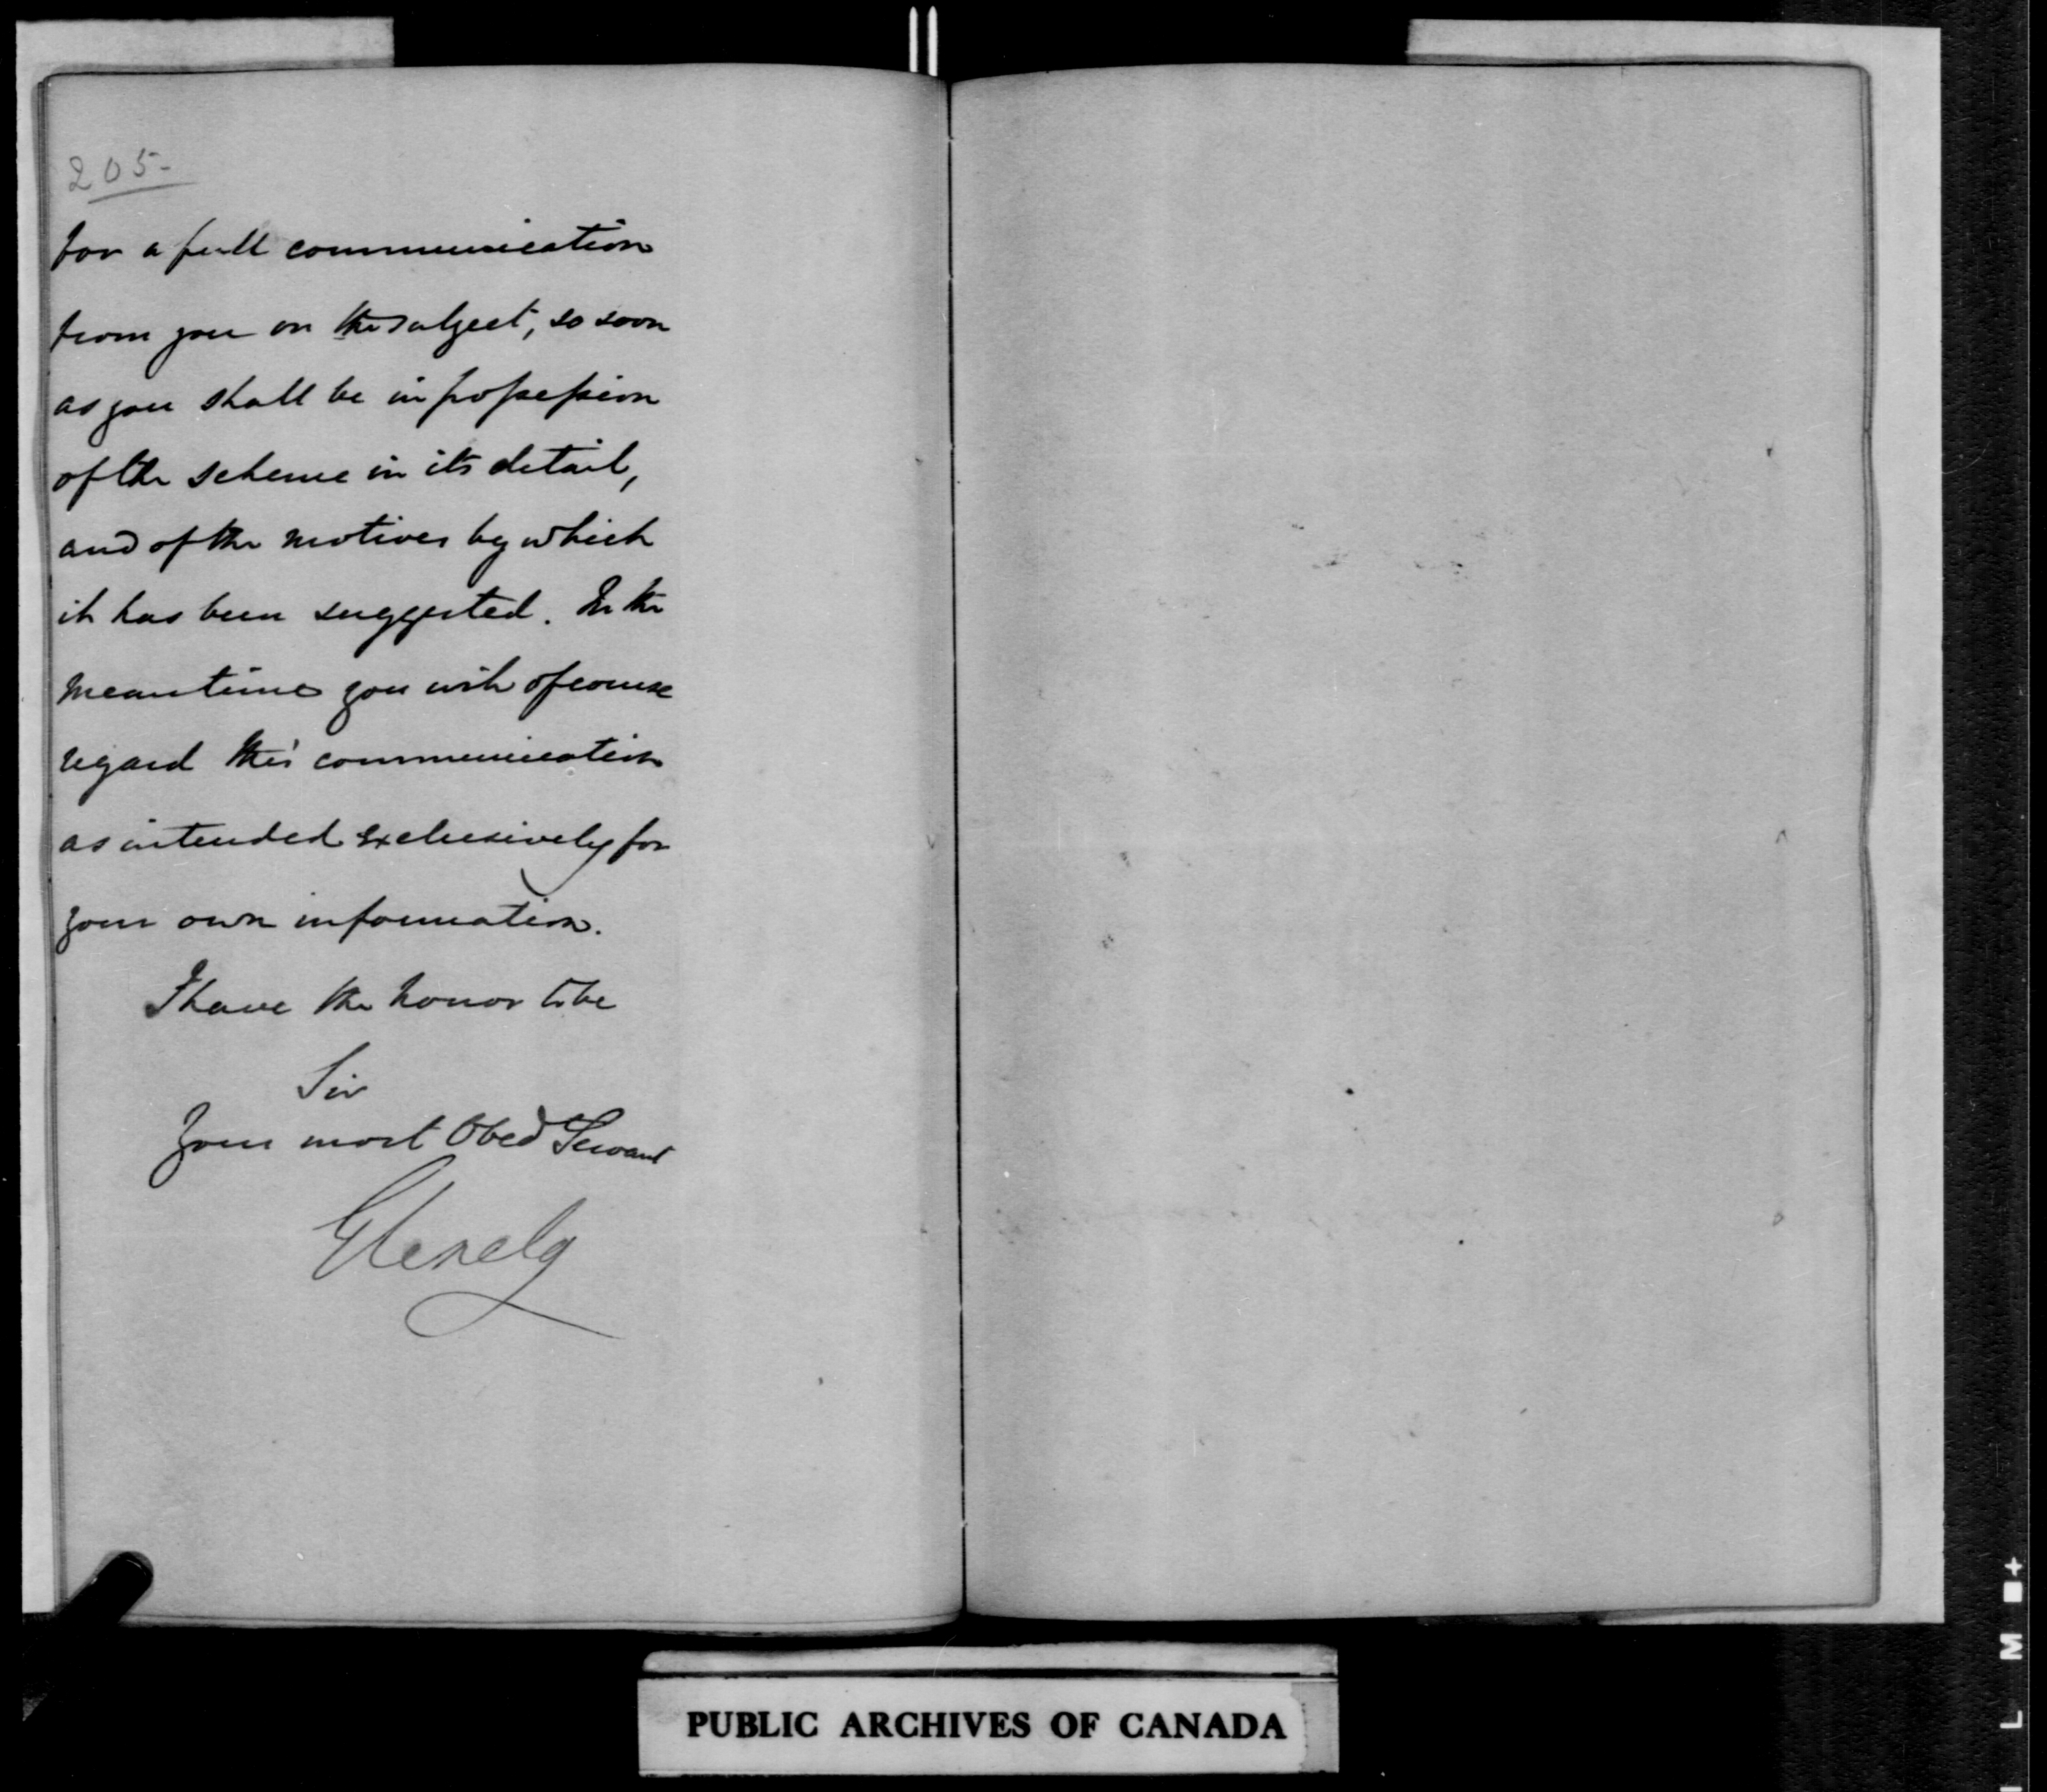 205-
for a full communication
from you on the subject, so soon
as you shall be in possession
of the scheme in its detail,
and of the motives by which
it has been suggested. In the
meantime you will of course
regard this communication
as intended exclusively for
your own information.
I have the honor to be
Sir
Your most Obed Servant
Glenelg
PUBLIC ARCHIVES OF CANADA
L M